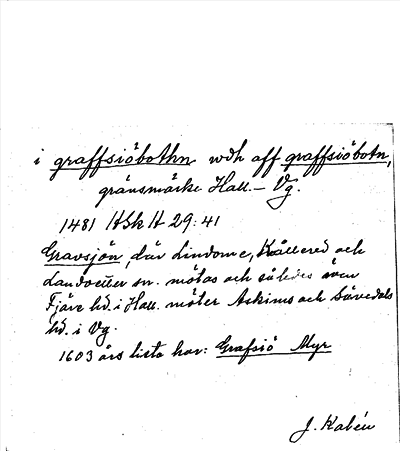 i graffsiöbothn wdh aff graffsiöbotn,
gränsmärke Hall. – Vg.
1481 HSkH 29:41
Gravsjön, där Lindome, Kållered och
Landvetter sn. mötas och således även
Fjäre hd. i Hall. möter Askims och Sävedals
hd. i Vg.
1603 års lista har: Grafsiö Myr
J. Kalén